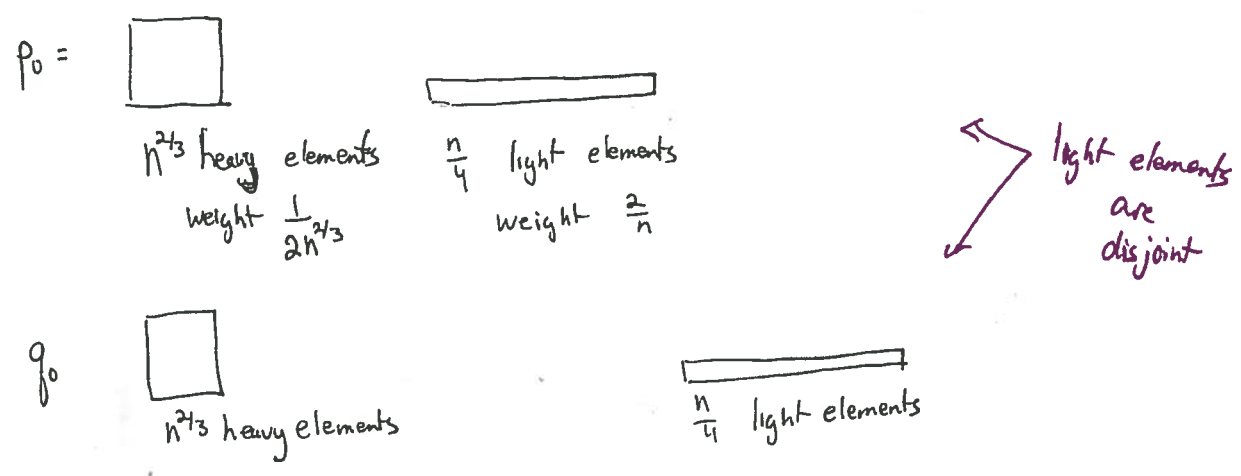 p₀ =
n^{2/3} heavy elements
weight 1/(2n^{2/3})
n/4 light elements
weight 2/n
light elements
are
disjoint
q₀
n^{2/3} heavy elements
n/4 light elements